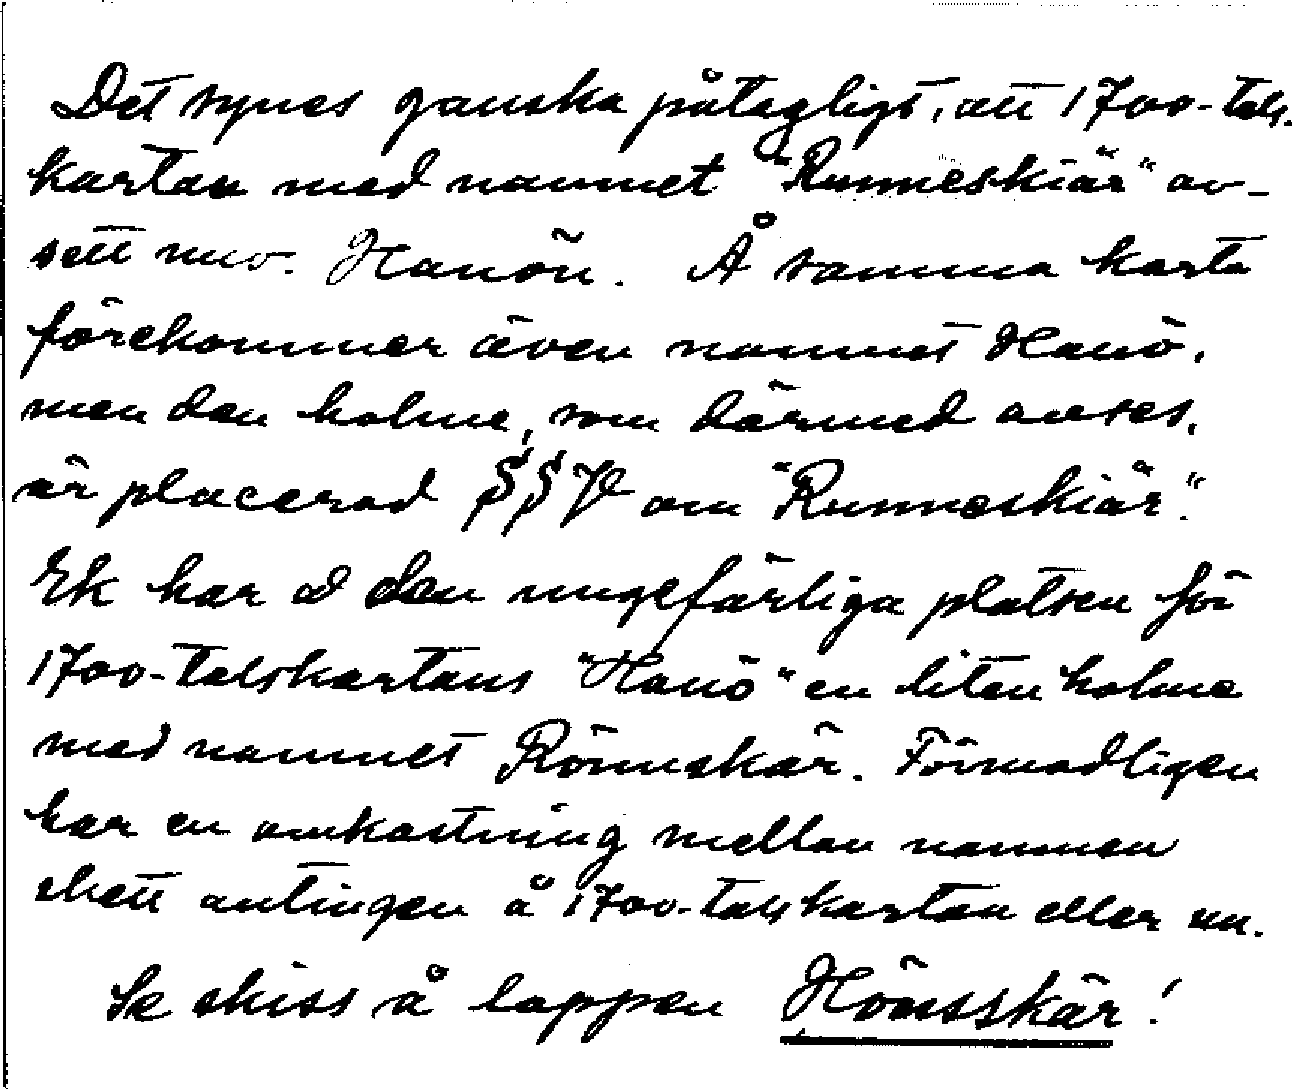 Det synes ganska påtagligt, att 1700-tals-
kartan med namnet "Runneskiär" av-
sett nuv. Hanön. Å samma karta
förekommer även namnet Hanö,
men den holme, som därmed avses,
är placerad SSV om "Runneskiär".
Ek har å den ungefärliga platsen för
1700-talskartans "Hanö" en liten holme
med namnet Rönnskär. Förmodligen
har en omkastning mellan namnen
skett antingen å 1700-talskartan eller nu.
Se skiss å lappen Hönsskär!